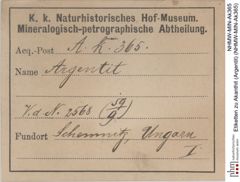 K. k. Naturhistorisches Hof-Museum.
Mineralogisch-petrographische Abtheilung.
Acq.-Post A. k. 365.
Name Argentit
V. d. N. 2568
Fundort Schemnitz, Ungarn
I.
NHMW-MIN-Ak365
Etiketten zu Akanthit (Argentit) (NHMW-MIN-Ak365)